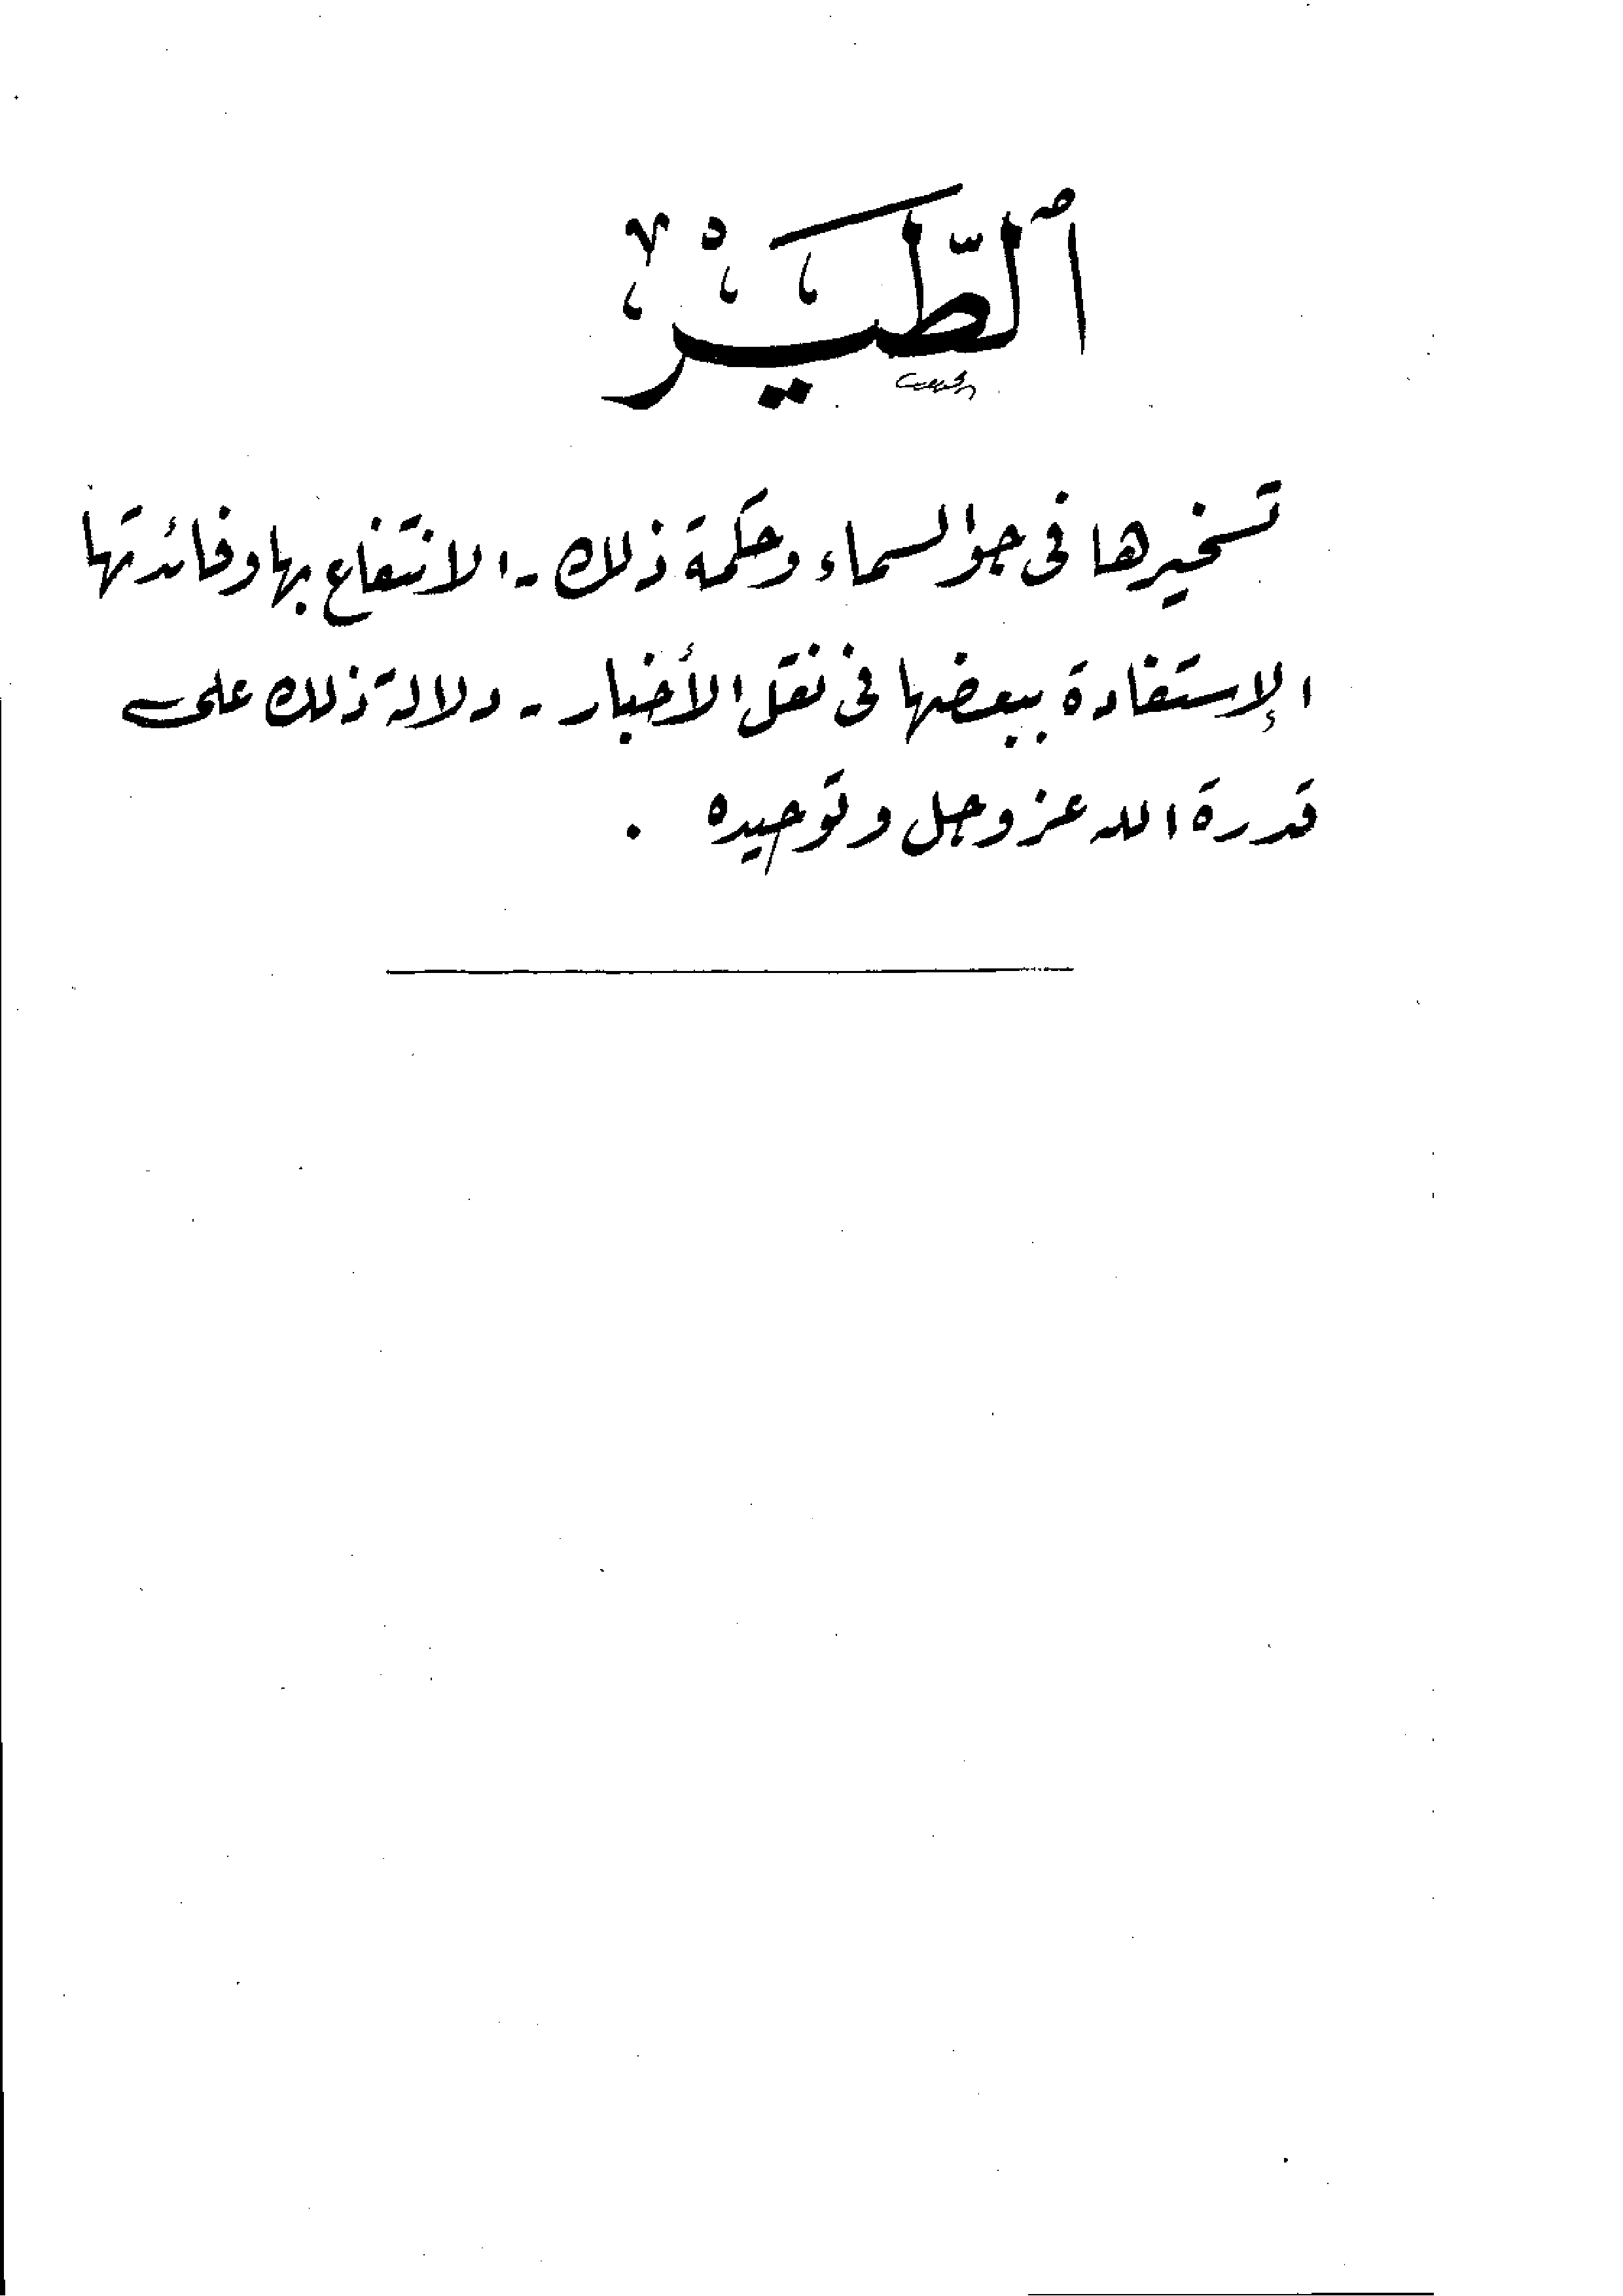 ٱلطَّيَرْ
تسخيرها فى جو السماء وحكمة ذلك - الانتفاع بها وفائدتها
الإستفادة ببعضها فى نقل الأخبار - دلالة ذلك على
قدرة الله عز وجل وتوحيده .